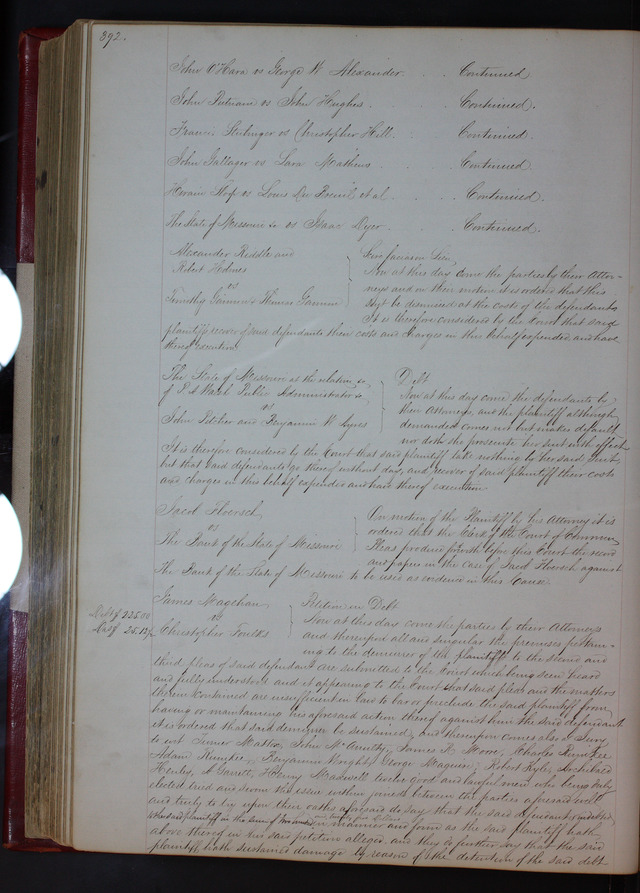 392.
John O'Hara vs George W Alexander . . . Continued
John Putnam vs John Hughes . . . Continued.
Francis vs Christopher Hill . . Continued.
John Gallager vs Sara Mathews . . . Continued.
Hiram vs Louis Du Breuil et al . . . Continued.
The State of Missouri &c vs Isaac Dyer . . . Continued.
Alexander Riddle and
Robert Holmes
vs
Timothy Gannon & Thomas Gannon
Now at this day come the parties by their Attor-
neys and on their motion it is ordered that this
suit be dismissed at the costs of the defendants
It is therefore considered by the Court that said
plaintiffs recover of said defendants their costs and charges in this behalf expended, and have
thereof execution.
The State of Missouri at the relation &c
of Walsh Public Administrator &c
vs
John Pilcher and Benjamin W Ayres
Debt
Now at this day come the defendants by
their Attorneys, and the plaintiff although
demanded comes not but makes default
nor doth she prosecute her suit with effect
It is therefore considered by the Court that said plaintiff take nothing by her said suit,
but that said defendants go thereof without day, and recover of said plaintiff their costs
and charges in this behalf expended and have thereof execution.
Jacob
vs
The Bank of the State of Missouri
On motion of the Plaintiff by his Attorney it is
ordered that the Clerk of the Court of Common
Pleas produce forth before this Court the record
and papers in the case of Jacob against
The Bank of the State of Missouri to be used as evidence in this Cause.
James Magehan
vs
Christopher Foulks
Debt $ 235.00
Dam $ 25.
Petition in Debt
Now at this day come the parties by their Attorneys
and thereupon all and singular the premises pertain-
ing to the demurrer of the plaintiff to the second and
third pleas of said defendant are submitted to the Court which being seen heard
and fully understood and it appearing to the Court that said pleas and the matters
therein contained are insufficient in law to bar or preclude the said plaintiff from
having or maintaining his aforesaid action thereof against him the said defendant
it is ordered that said demurrer be sustained, and thereupon comes also a Jury
to wit Turner Maddox, John McCarthy, James F Moore, Charles
Adam, Benjamin Wright, George Maguire, Robert Kyle, Archibald
Henley, Garrett, Henry Maxwell twelve good and lawful men who being duly
elected tried and sworn the issue within joined between the parties aforesaid well
and truly to try upon their oaths aforesaid do say that the said defendant is indebted
to the said plaintiff in the sum of two hundred in manner and form as the said plaintiff hath
above thereof in his said petition alleged and they do further say that the said
plaintiff hath sustained damage by reason of the detention of the said debt